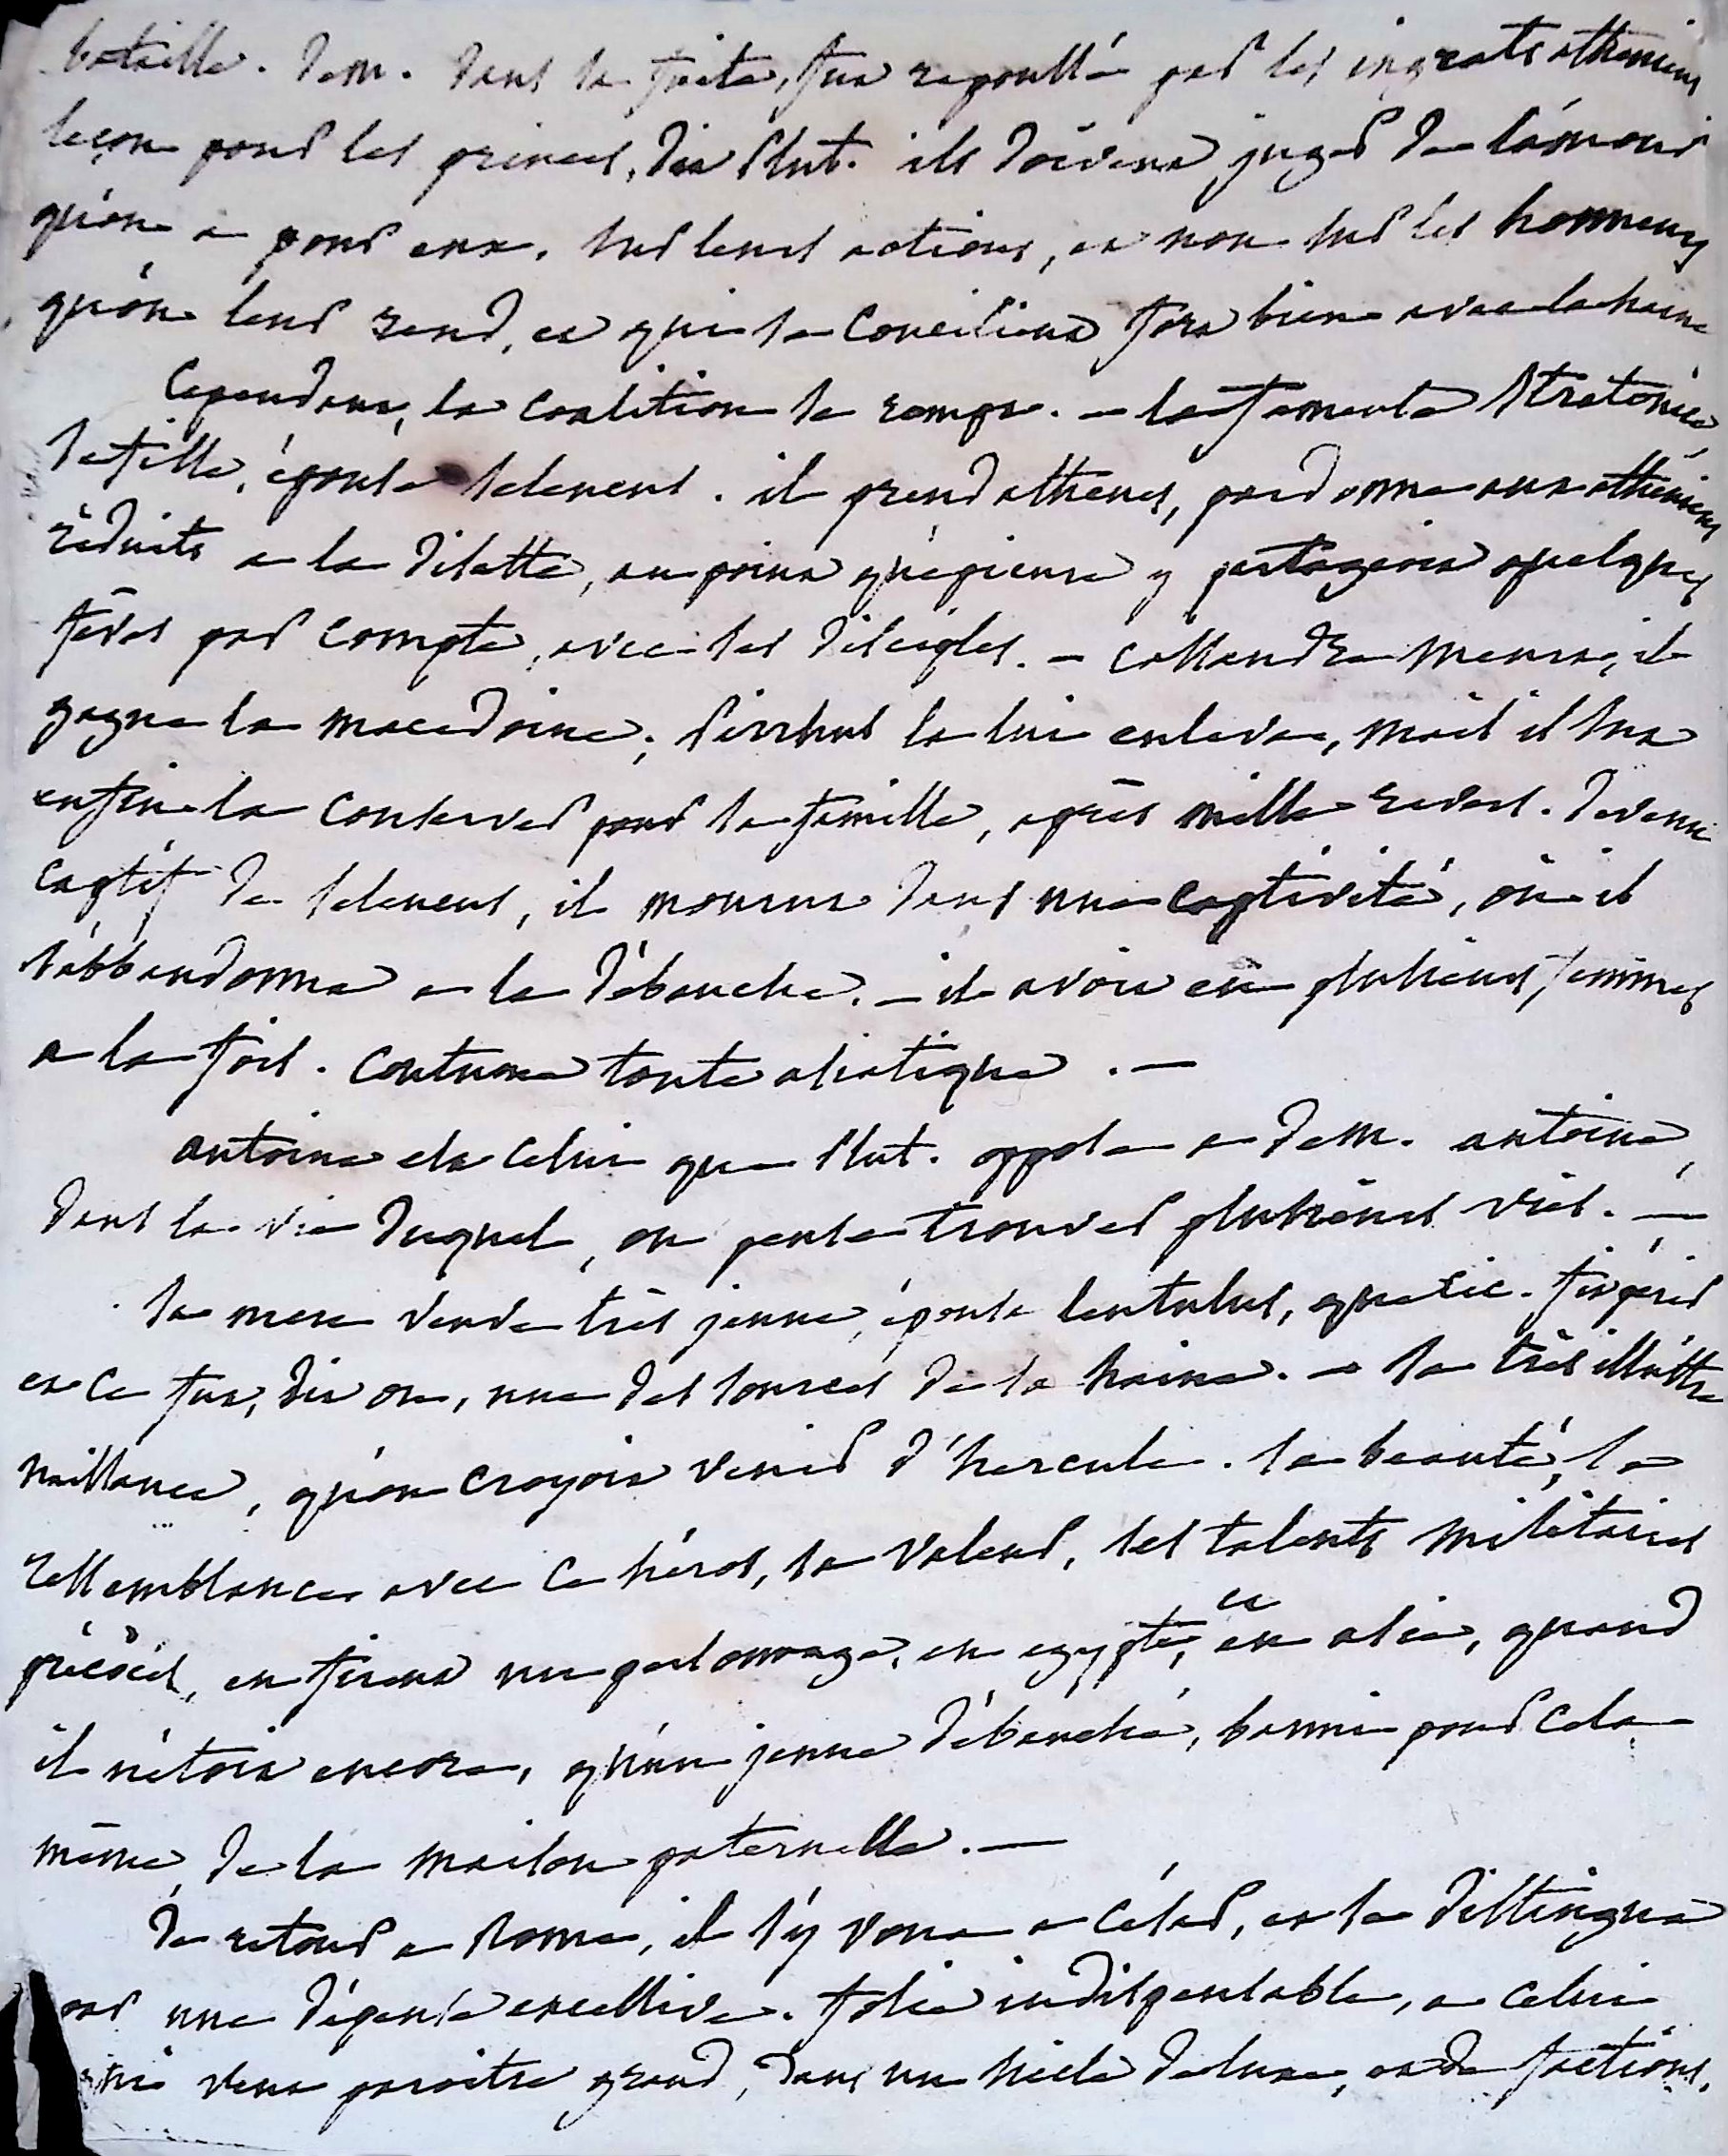 bataille. Dem. dans sa fuite, fut repoussé par les ingrats atheniens
leçon pour les princes, dit Plut. ils doivent juger de l'amour
qu'on a pour eux, sur leurs actions, et non sur les honneurs
qu'on leur rend, et qui se concilient fort bien avec la haine
Cependant, la coalition se rompt. – la fameuse Stratonice
sa fille, épouse seleucus. il prend athenes, pardonne aux atheniens
réduits a la disette, au point qu'épicure y partageoit quelques
féves par compte, avec ses disciples. – Cassandre meurt, il
gagne la macedoine; Pirrhus la lui enleve, mais il sut
enfin la conserver pour sa famille, après mille revers. devenu
captif de seleucus, il mourut dans une captivité, où il
s'abbandonna a la débauche. – il avoit eu plusieurs femmes
a la fois. coutume toute asiatique. –
antoine est celui que Plut. oppose a Dem. antoine,
dans la vie duquel, on peut trouver plusieurs vies. –
sa mere veuve très jeune, épousa lentulus, que Cic. fit périr
et ce fut, dit on, une des sources de sa haine. – sa très illustre
naissance, qu'on croyoit venir d'hercule. sa beauté, sa
ressemblance avec ce héros, sa valeur, ses talents militaires
précoces, en firent un personnage, en egypte, et en asie, quand
il n'étoit encore, qu'un jeune débauché, banni pour cela
même, de la maison paternelle. –
de retour a Rome, il s'y voua a César, et se distingua
par une dépense excessive. folie indispensable, a celui
qui veut paroitre grand, dans un siècle de luxe, et de factions.